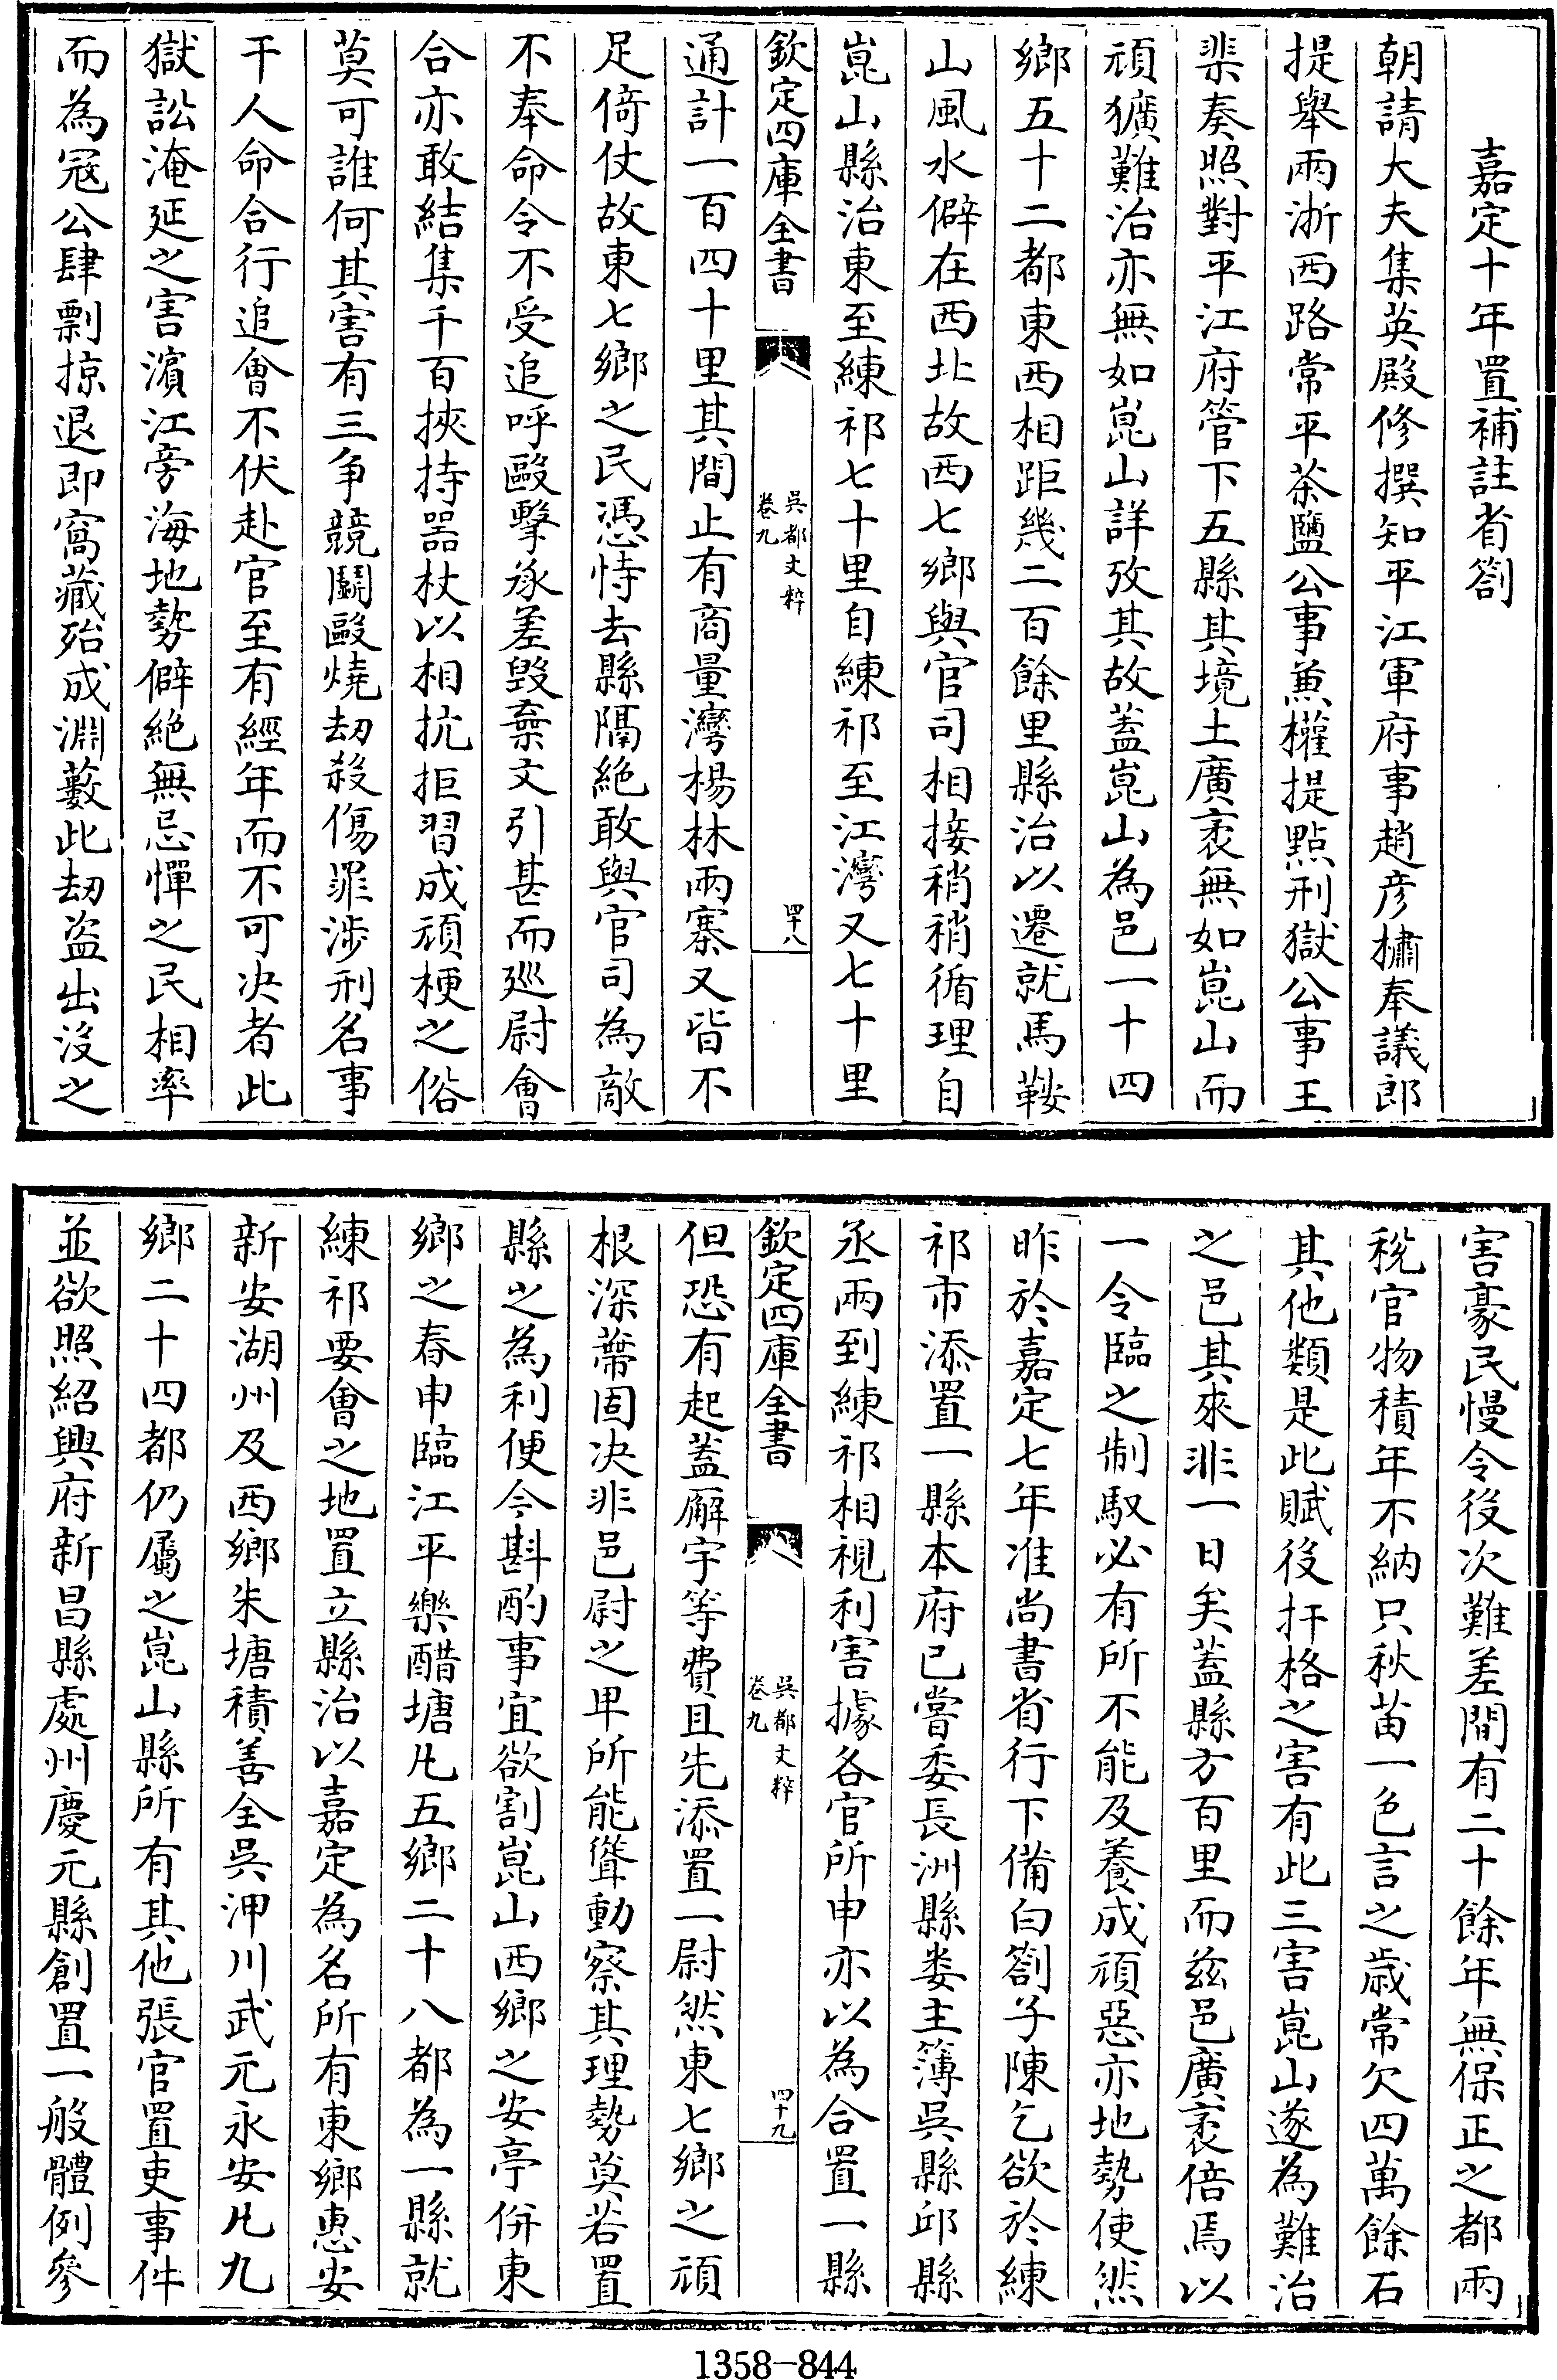 嘉定十年置補註省劄
朝請大夫集英殿修撰知平江軍府事趙彦橚奉議郎
提舉兩浙西路常平茶鹽公事兼權提點刑獄公事王
棐奏照對平江府管下五縣其境土廣袤無如崑山而
頑獷難治亦無如崑山詳攷其故蓋崑山為邑一十四
鄉五十二都東西相距幾二百餘里縣治以遷就馬鞍
山風水僻在西北故西七鄉與官司相接稍稍循理自
崑山縣治東至練祁七十里自練祁至江灣又七十里
欽定四庫全書
吳都文粹
卷九
四十八
通計一百四十里其間止有商量灣楊林兩寨又皆不
足倚仗故東七鄉之民憑恃去縣隔絶敢與官司為敵
不奉命令不受追呼毆擊承差毀棄文引甚而巡尉會
合亦敢結集千百挾持噐杖以相抗拒習成頑梗之俗
莫可誰何其害有三争競鬬毆燒刼殺傷罪渉刑名事
干人命合行追會不伏赴官至有經年而不可决者此
獄訟淹延之害濵江旁海地勢僻絶無忌憚之民相率
而為冦公肆剽掠退即窩藏殆成淵藪此刼盗出沒之
害豪民慢令後次難差間有二十餘年無保正之都兩
稅官物積年不納只秋苗一色言之歳常欠四萬餘石
其他類是此賦後扞格之害有此三害崑山遂為難治
之邑其來非一日矣蓋縣方百里而兹邑廣袤倍焉以
一令臨之制馭必有所不能及養成頑惡亦地勢使然
昨於嘉定七年准尚書省行下備白劄子陳乞欲於練
祁市添置一縣本府已嘗委長洲縣婁主簿吳縣邱縣
丞兩到練祁相視利害據各官所申亦以為合置一縣
欽定四庫全書
吳都文粹
卷九
四十九
但恐有起蓋廨宇等費且先添置一尉然東七鄉之頑
根深蔕固决非邑尉之卑所能聳動察其理勢莫若置
縣之為利便今斟酌事宜欲割崑山西鄉之安亭併東
鄉之春申臨江平樂醋塘凡五鄉二十八都為一縣就
練祁要會之地置立縣治以嘉定為名所有東鄉惠安
新安湖州及西鄉朱塘積善全吳浬川武元永安凡九
鄉二十四都仍屬之崑山縣所有其他張官置吏事件
並欲照紹興府新昌縣處州慶元縣創置一般體例參
1358-844